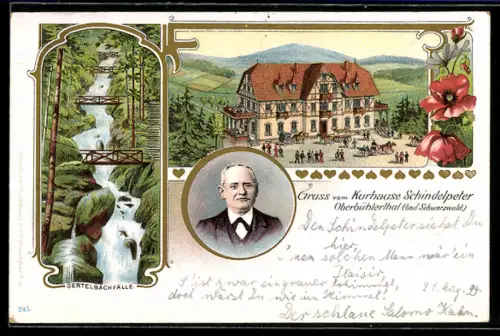 Gruss vom Kurhause Schindelpeter
Oberbühlerthal (bad Schwarzwald)
GERTELBACHFÄLLE.
Den Schindelpeter siehst Du
hier,
'nen solchen Mann wär' ein
Plaisir,
S'ist zwar ein grauer Schimmel,
doch warst Du wie im Himmel!
21. Aug. 99.
Der schlaue Salomo Kahn.
245